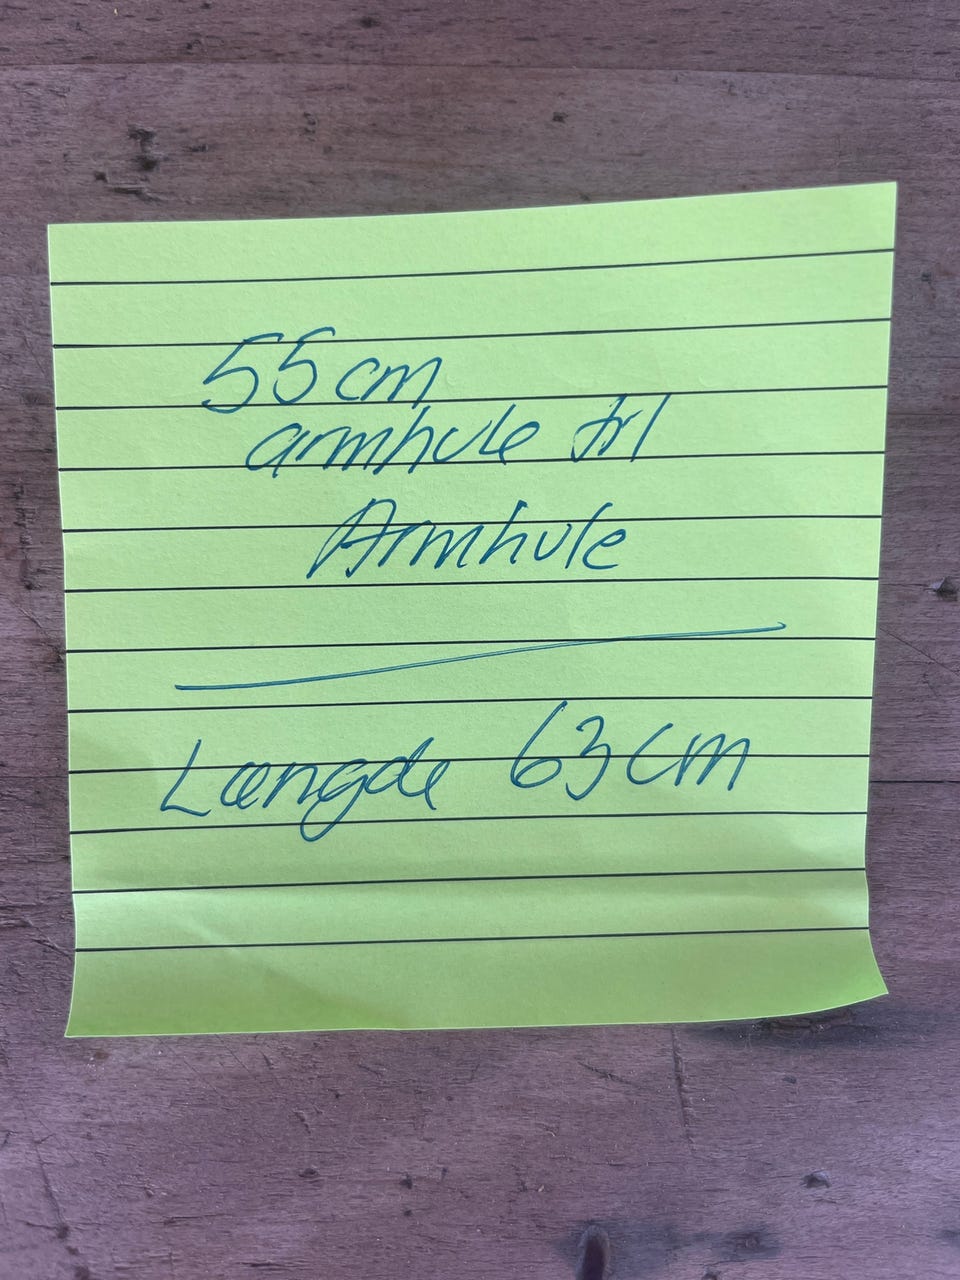 55 cm
armhule til
Armhule
Længde 63 cm